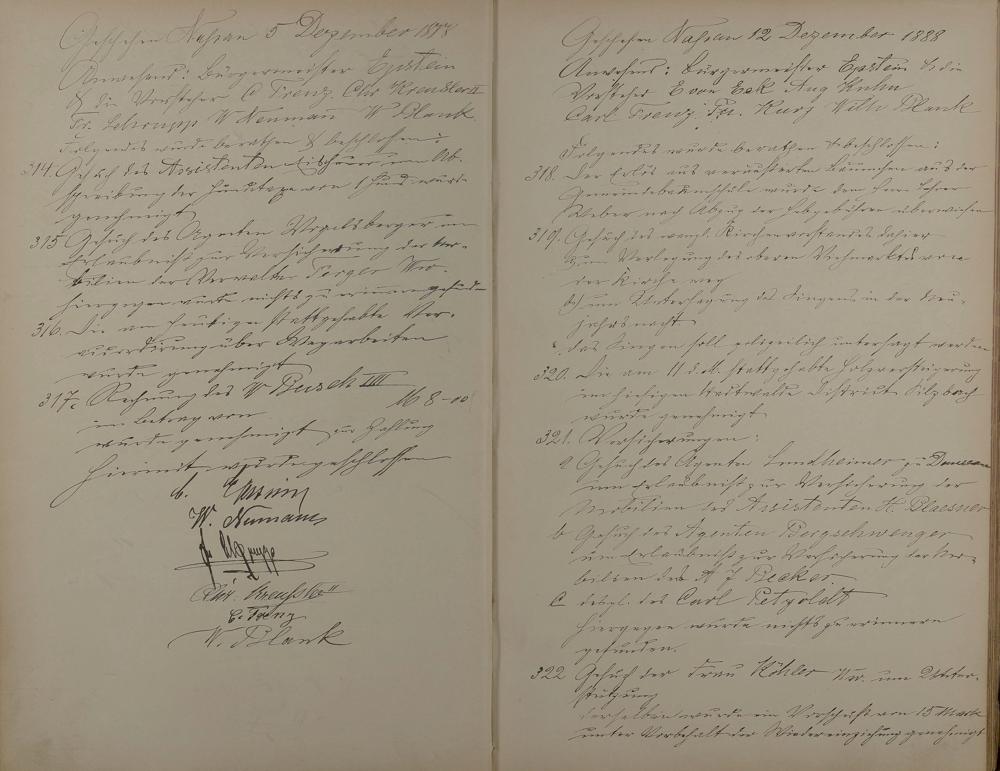 Geschehen Nassau 5 Dezember 1888
Anwesend: Bürgermeister Epstein
& die Vorsteher C Trenz. Chr Kreussler II
Fr. Schrupp W Neumann W Plank
Folgendes wurde berathen & beschlossen:
314. Gesuch des Assistenten um Ab-
schreibung der Hundetaxe von 1 Hund wurde
genehmigt
315 Gesuch des Agenten Vogelsberger um
Erlaubniß zur Versicherung der Mo-
bilien des Verwalter
hiergegen wurde nichts zu erinnern gefunden
316. Die am heutigen stattgehabte Ver-
über Wegarbeiten
wurde genehmigt
317. Rechnung des W Busch III
im Betrag von M 8-00
wurde genehmigt zur Zahlung
Hiermit wurde geschlossen
W. Neumann
Fr Schrupp
Chr. Kreußler II
C. Trenz
W. Plank
Geschehen Nassau 12 Dezember 1888
Anwesend: Bürgermeister Epstein & die
Vorsteher E von Eck Aug Kuhn
Carl Trenz Fr. Kurz Wilh Plank
Folgendes wurde berathen & beschlossen:
318. Der Erlös aus veräußerten Bäumchen aus der
Gemeindebaumschule wurde dem Herrn Lehrer
Weber nach Abzug der Hebgebühren überwiesen
319. Gesuch des evangl. Kirchenvorstandes dahier
zum Verlegung des oberen Viehmarktes von
der Kirche weg
b) um Untersagung des Singens in der Neu-
jahrsnacht
das Singen soll polizeilich untersagt werden
320. Die am 11 d. M. stattgehabte Holzversteigerung
im hiesigen Stadtwalde District
wurde genehmigt
321. Versicherungen:
a Gesuch des Agenten Landheimer zu
um Erlaubniß zur Versicherung der
Mobilien des Assistenten H. Plaesner
b Gesuch des Agenten Bergschwenger
um Erlaubniß zur Versicherung der Mo-
bilien des A J Becker
c desgl. des Carl Petzoldt
hiergegen wurde nichts zu erinnern
gefunden.
322 Gesuch der Frau Köhler Ww. um Unter-
stützung
derselben wurde ein Vorschuß von 15 Mark
unter Vorbehalt der Wiedereinziehung genehmigt